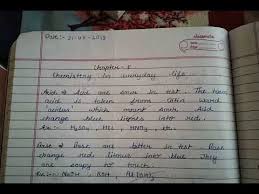 classmate
Date:- 21-07-2018
Chapter - 5
Chemistry in everyday life
Acid => Acid are sour in test. The term
acid is taken from Latin word
'acidus' which mount sour. Acid
change blue litmus into red.
Ex:- H2SO4, HCl, HNO3, etc.
Base => Base are bitter in test. Base
change red litmus into blue. They
are soapy to touch.
Ex:- NaOH, KOH,